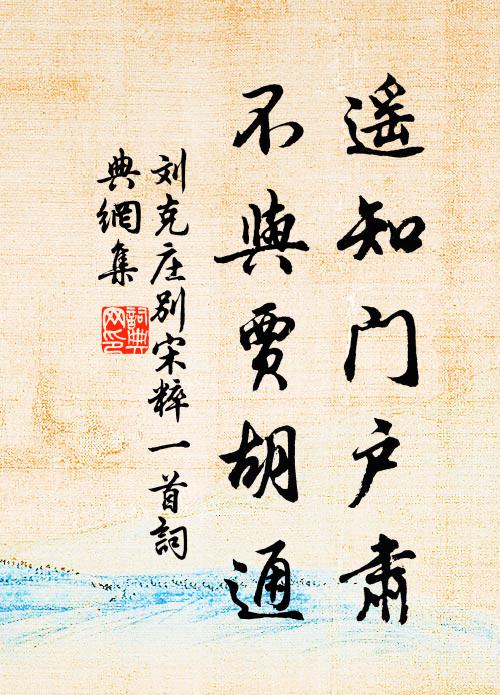 遥知门户肃
不與賈胡通
刘克庄别宋粹一首詞
典網集
詞典
网印